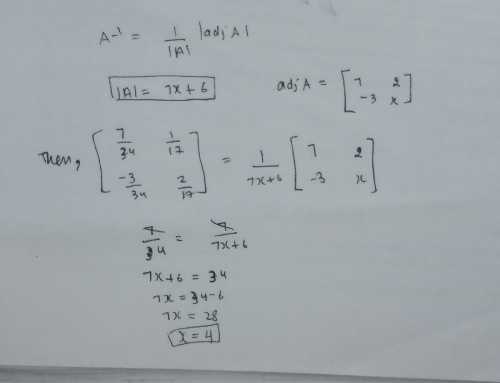 A⁻¹ = 1/|A| |adj A|
|A| = 7x + 6
adj A = [7 2; -3 x]
Then, [7/34 1/17; -3/34 2/17] = 1/(7x+6) [7 2; -3 x]
7/34 = 7/(7x+6)
7x+6 = 34
7x = 34-6
7x = 28
x = 4